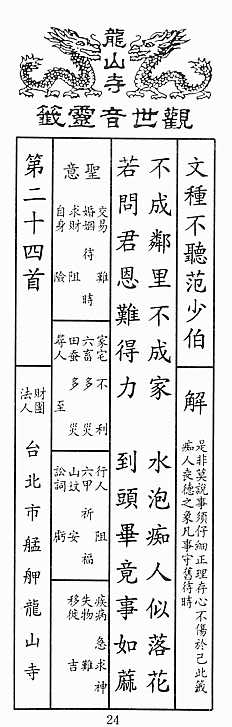 龍山寺
觀世音靈籤
文種不聽范少伯
解
是非莫說事須仔細正理存心不傷於己此籤
痴人喪德之象凡事守舊待時
不成鄰里不成家 水泡痴人似落花
若問君恩難得力 到頭畢竟事如蔴
聖意
交易 難
婚姻 待時
求財 阻
自身 險
家宅 不利
六畜 多災
田蚕 多災
尋人 至
行人 阻
六甲 祈福
山坟 安
訟詞 虧
疾病 急求神
失物 難
移徙 吉
第二十四首
財團
法人
台北市艋舺龍山寺
24